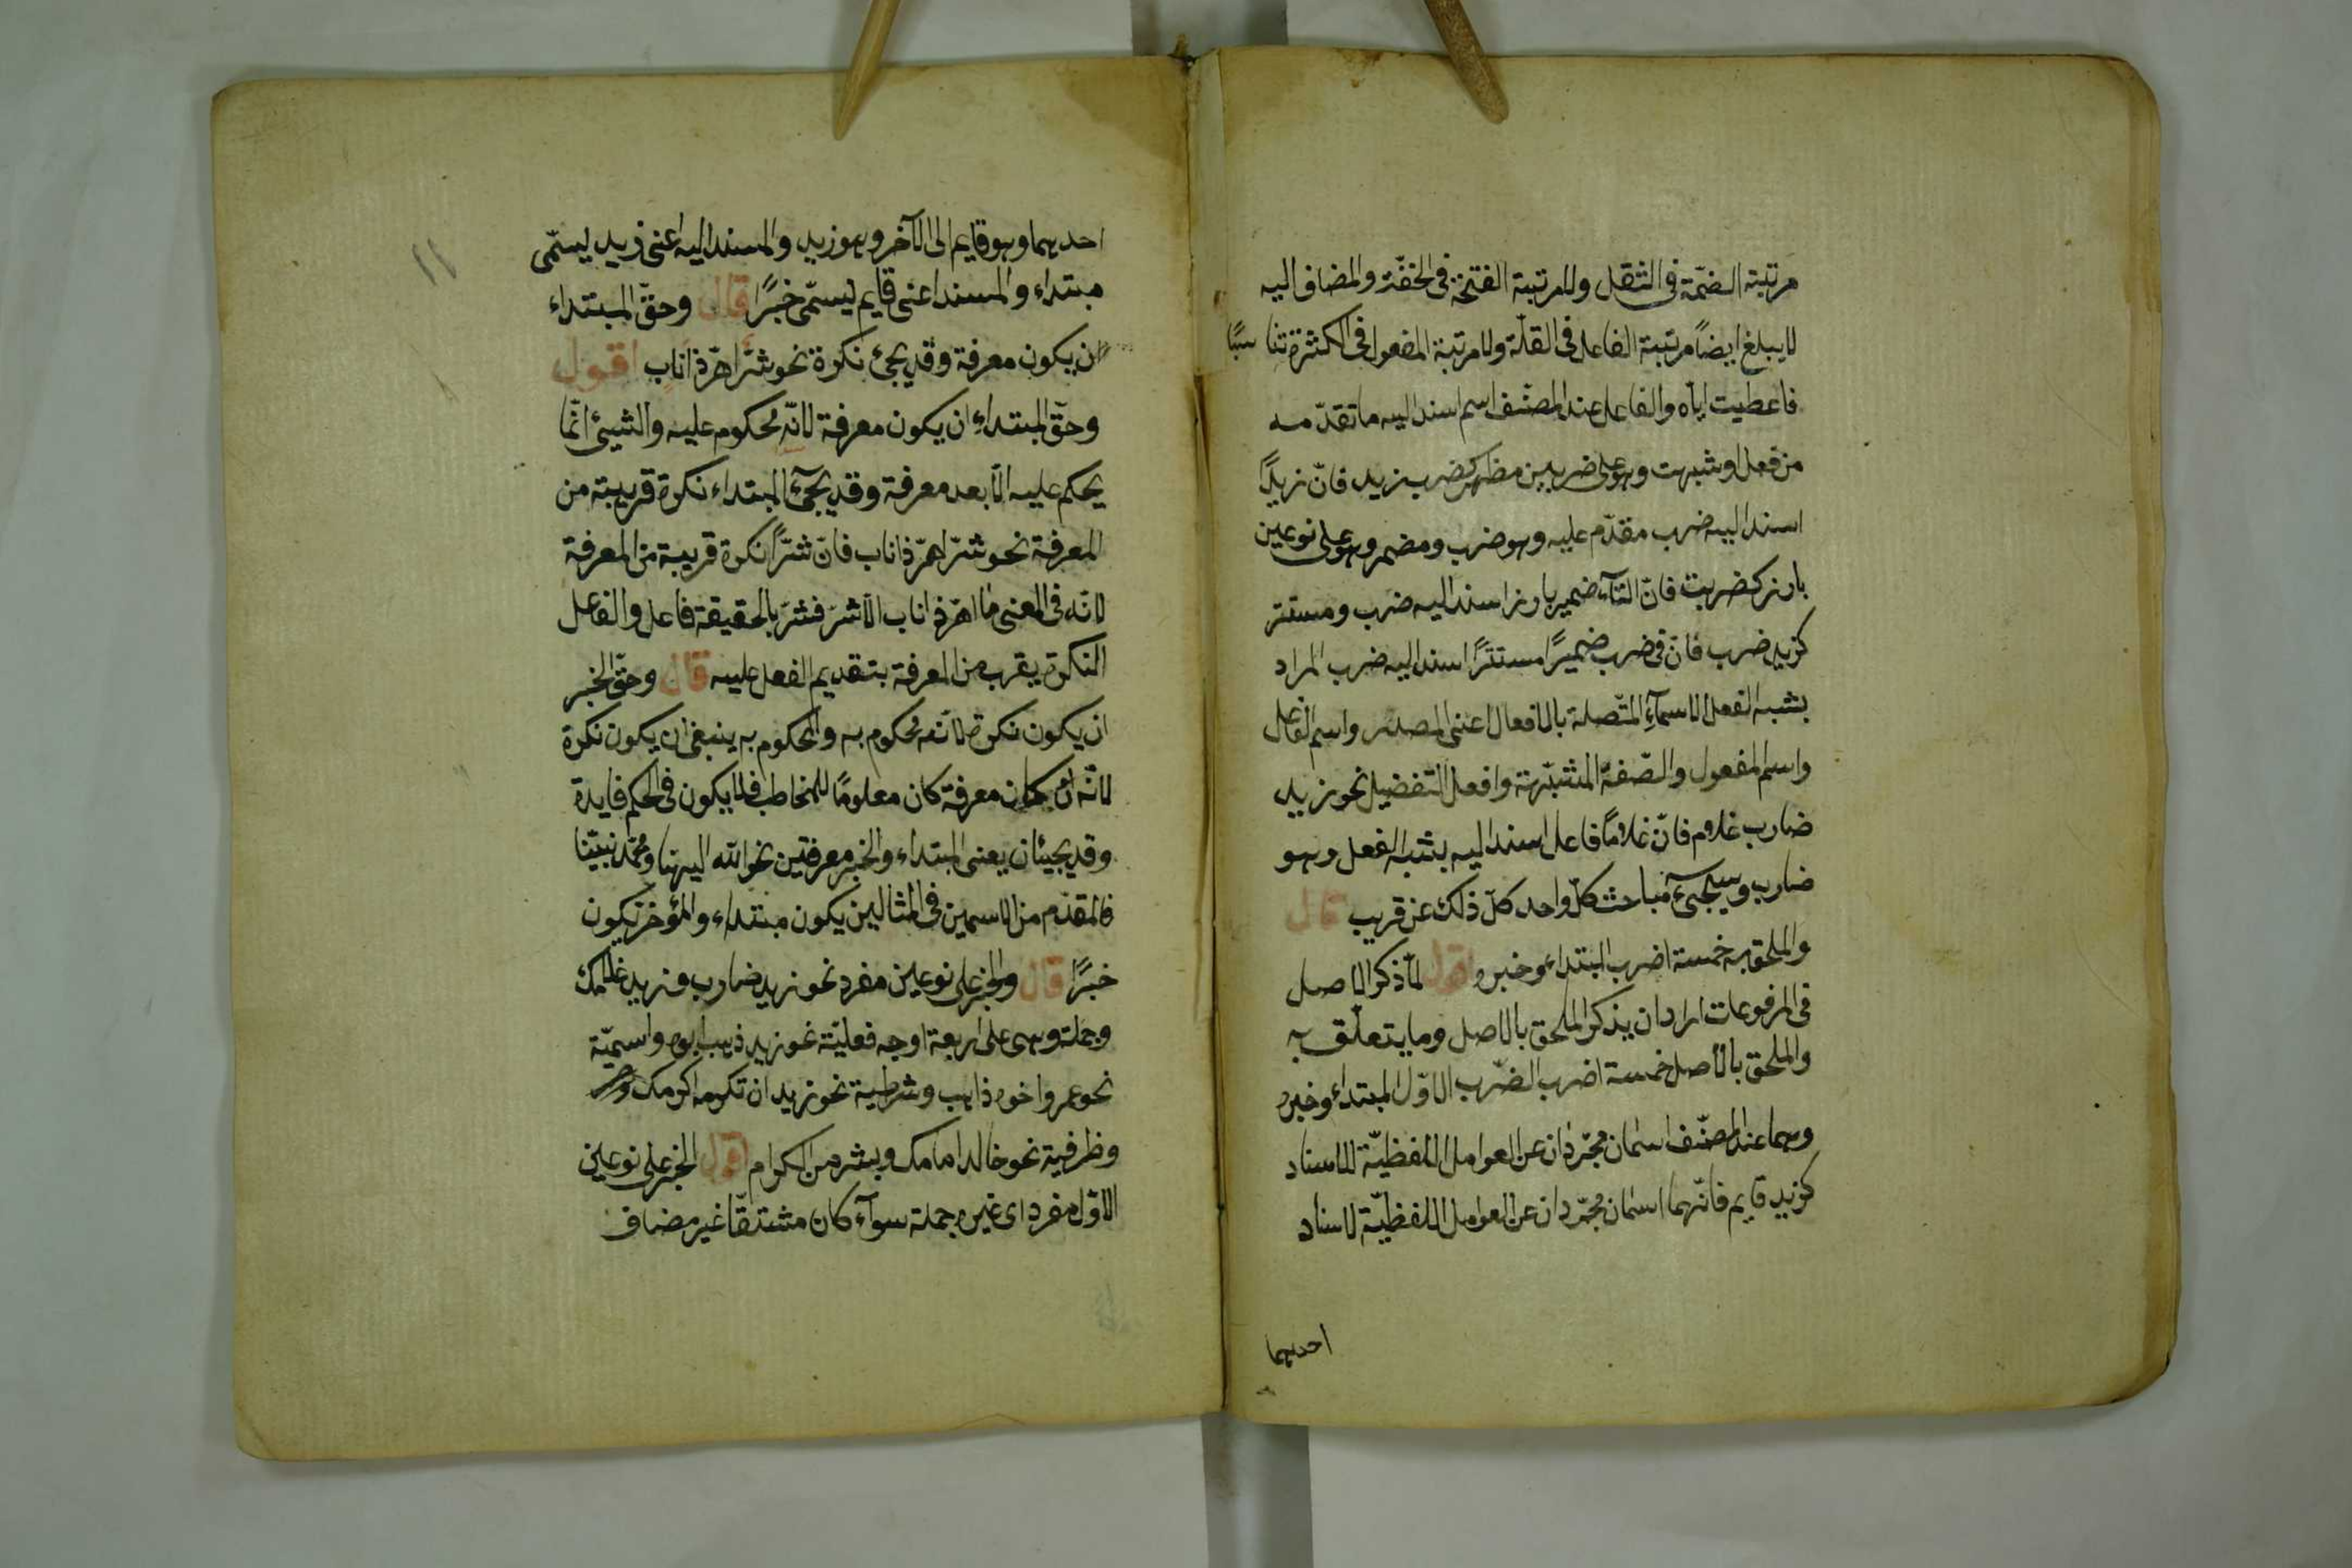 مرتبة الضمّة فى الثقل ولا مرتبة الفتحة فى الخفّة والمضاف اليه
لا يبلغ ايضاً مرتبة الفاعل فى القلّة ولا مرتبة المفعول فى الكثرة تناسبًا
فاعطيت ايّاه والفاعل عند المصنّف اسم اسند اليه ما تقدّمه
من فعل او شبهه وهو على ضربين مظهر كضرب زيد فانّ زيدًا
اسند اليه ضرب مقدّم عليه وهو ضرب ومضمر وهو على نوعين
بارز كضربت فانّ التآء ضمير بارز اسند اليه ضرب ومستتر
كزيد ضرب فانّ فى ضرب ضميرًا مستترًا اسند اليه ضرب المراد
بشبه الفعل الاسمآء المتّصلة بالافعال اعنى المصدر واسم الفاعل
واسم المفعول والصّفة المشبّهة وافعل التفضيل نحو زيد
ضارب غلامه فانّ غلامًا فاعل اسند اليه بشبه الفعل وهو
ضارب وسيجىء مباحث كلّ واحد كلّ ذلك عن قريب قال
والملحق به خمسة اضرب المبتداء وخبره اقول لمّا ذكر الاصل
فى المرفوعات اراد ان يذكر الملحق بالاصل وما يتعلّق به
والملحق بالاصل خمسة اضرب الضّرب الاوّل المبتداء وخبره
وهما عند المصنّف اسمان مجرّدان عن العوامل اللفظيّة للاسناد
كزيد قايم فانّهما اسمان مجرّدان عن العوامل اللفظيّة لاسناد
احديهما
١١
احديهما وهو قايم الى الآخر وهو زيد والمسند اليه اعنى زيد يسمّى
مبتداء والمسند اعنى قايم يسمّى خبرًا قال وحقّ المبتداء
ان يكون معرفة وقد يجئ نكرة نحو شرّ اهرّ ذا ناب اقول
وحقّ المبتداء ان يكون معرفة لانّه محكوم عليه والشيئ انّما
يحكم عليه الّا بعد معرفة وقد يجئ المبتداء نكرة قريبة من
المعرفة نحو شرّ اهرّ ذا ناب فانّ شرًّا نكرة قريبة من المعرفة
لانّه فى المعنى ما اهرّ ذا ناب الّا شرّ فشرّ بالحقيقة فاعل والفاعل
النكرة يقرب من المعرفة بتقديم الفعل عليه قال وحقّ الخبر
ان يكون نكرة لانّه محكوم به والمحكوم به ينبغى ان يكون نكرة
لانّه ان كان معرفة كان معلومًا للمخاطب فلا يكون فى الحكم فايدة
وقد يجيئان يعنى المبتداء والخبر معرفتين نحو الله الهنا ومحمّد نبيّنا
فالمقدّم من الاسمين فى المثالين يكون مبتداء والمؤخر يكون
خبرًا قال والخبر على نوعين مفرد نحو زيد ضارب وزيد غلامك
وجملة وهى على اربعة اوجه فعليّة نحو زيد ذهب ابوه واسميّة
نحو عمرو اخوه ذاهب وشرطية نحو زيد ان تكرمه اكرمك
وظرفية نحو خالد امامك وبشر من الكرام اقول الخبر على نوعين
الاوّل مفرد اى غير جملة سوآء كان مشتقّا غير مضاف